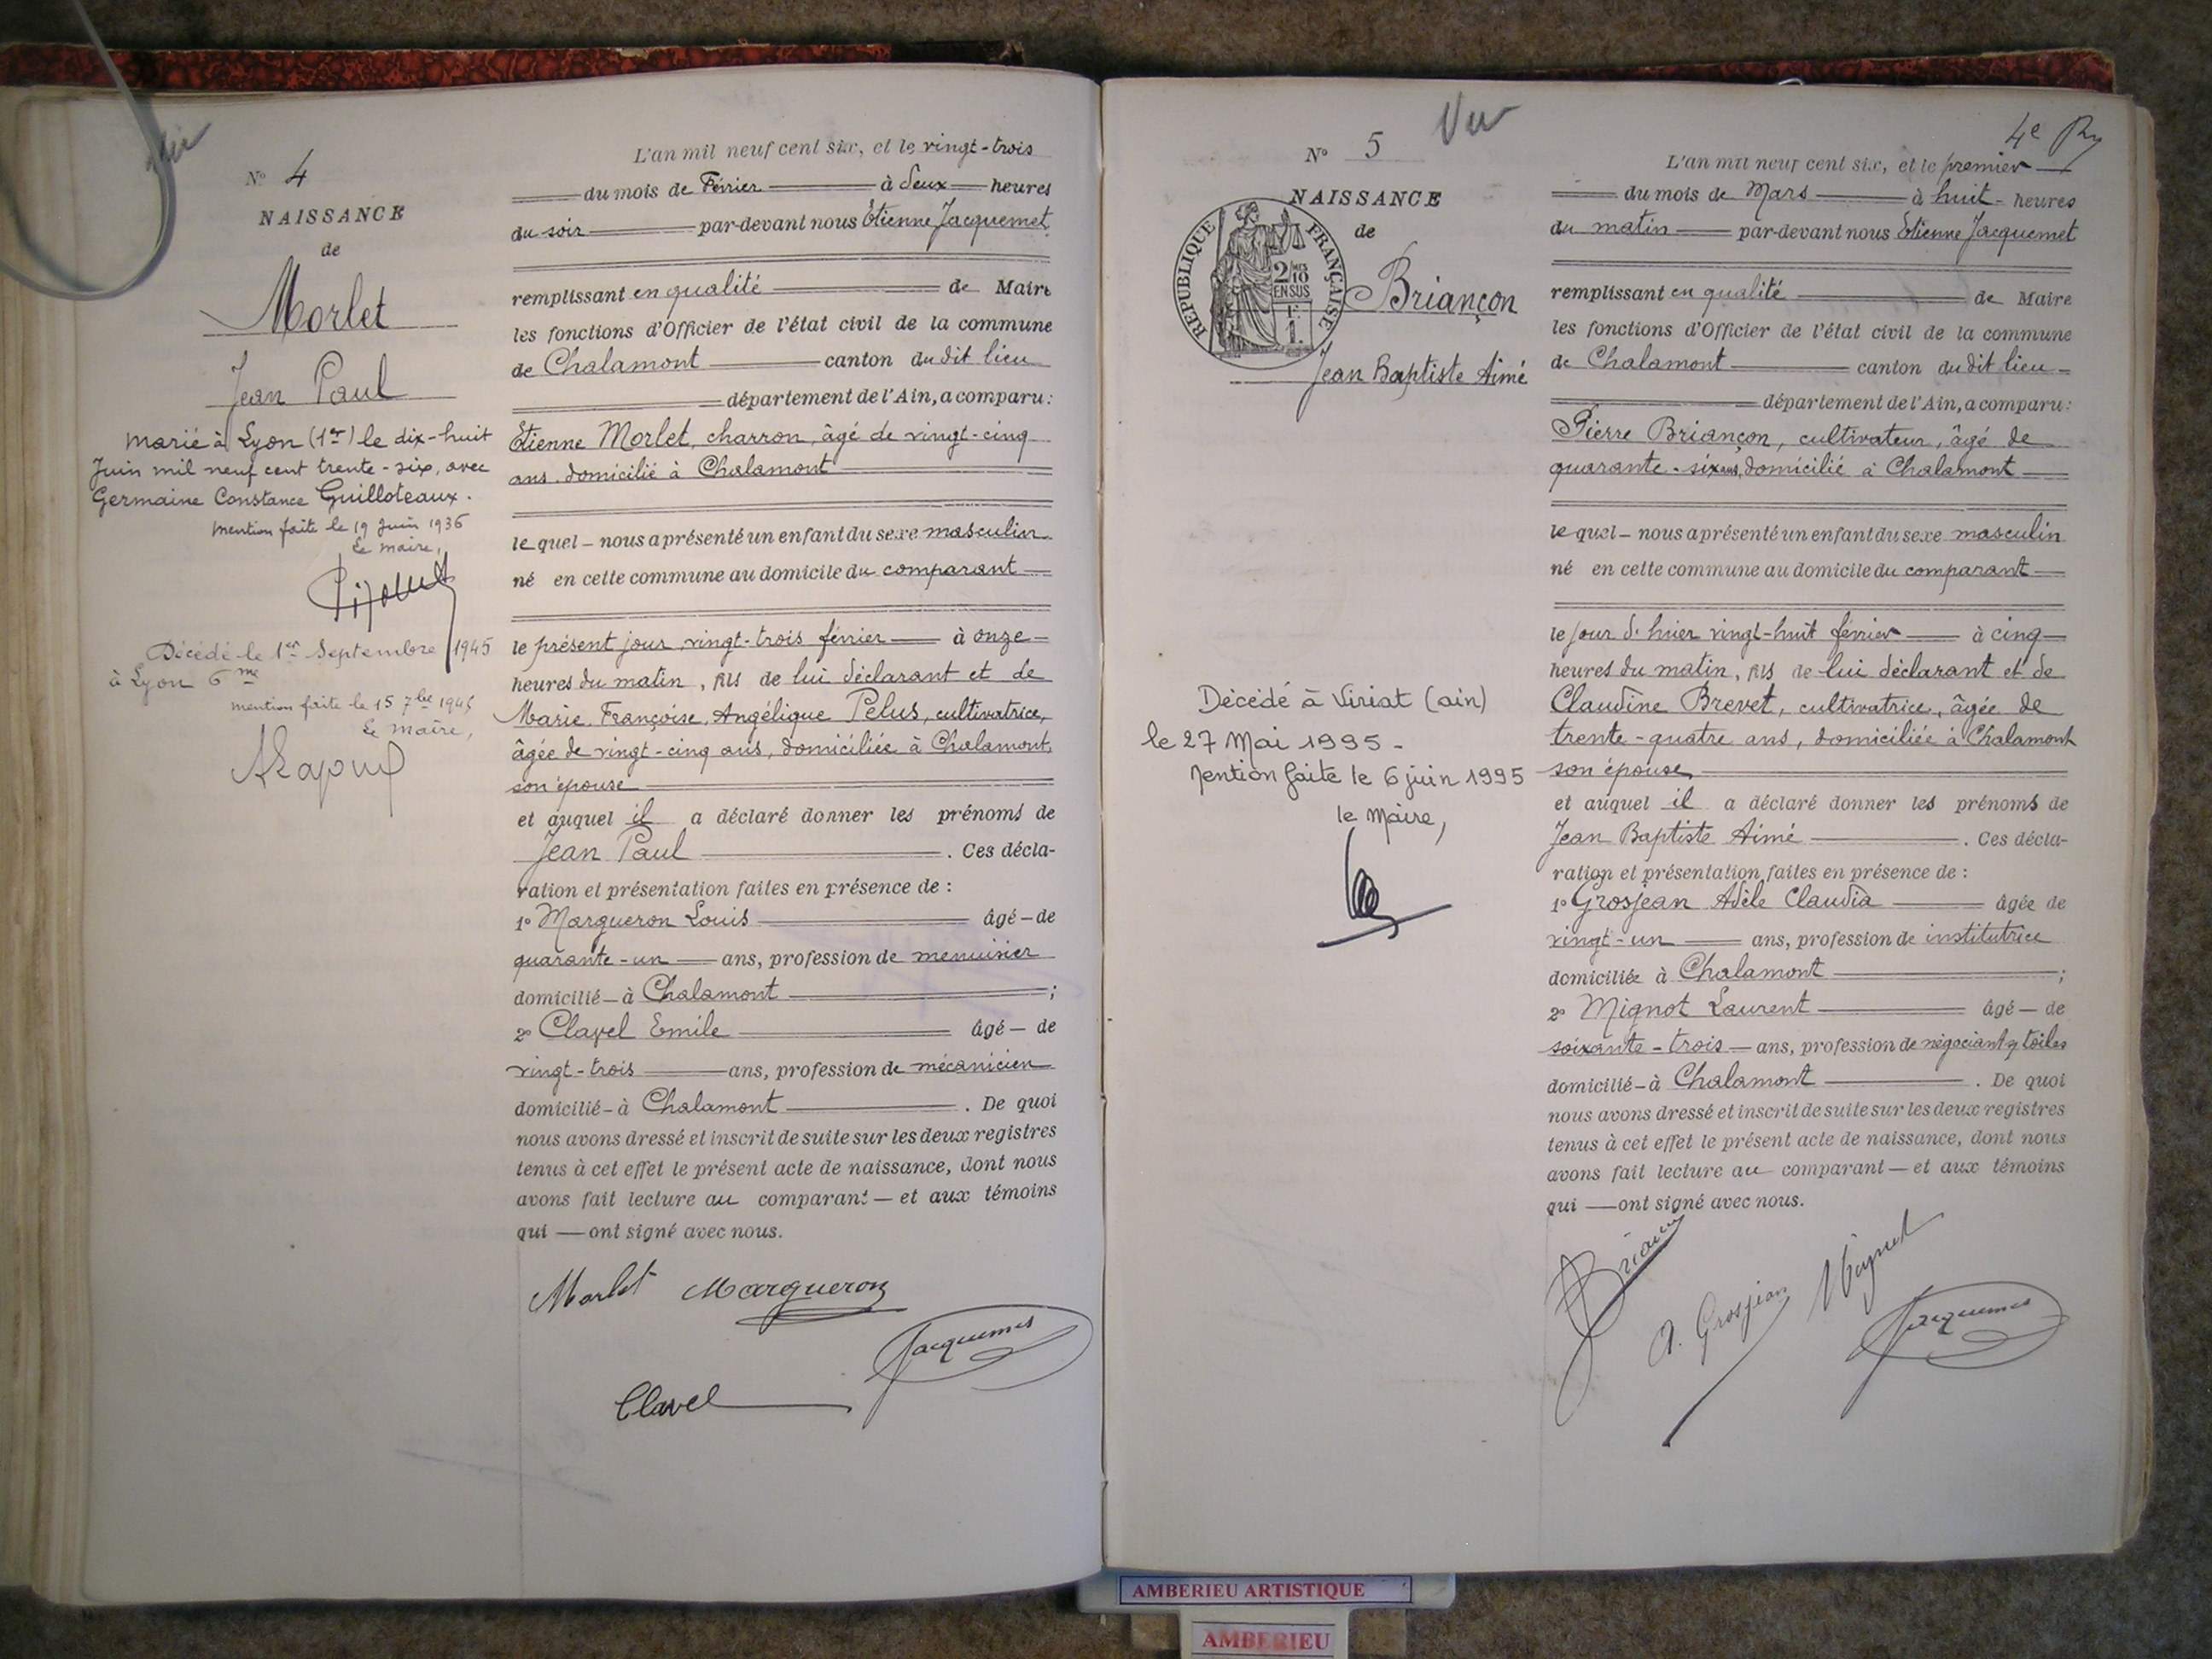 Nº 4
NAISSANCE
de
Morlet
Jean Paul
marié à Lyon (1er) le dix-huit
Juin mil neuf cent trente-six, avec
Germaine Constance Guilloteaux.
Mention faite le 19 Juin 1936
Le maire,
Décédé le 1er Septembre 1945
à Lyon 6me
mention faite le 15 7bre 1945
Le maire,
L'an mil neuf cent six, et le vingt-trois
du mois de Février à deux heures
du soir par-devant nous Etienne Jacquemet
remplissant en qualité de Maire
les fonctions d'Officier de l'état civil de la commune
de Chalamont canton du dit lieu
département de l'Ain, a comparu:
Etienne Morlet, charron, âgé de vingt-cinq
ans, domicilié à Chalamont
le quel nous a présenté un enfant du sexe masculin
né en cette commune au domicile du comparant
le présent jour vingt-trois février à onze
heures du matin, fils de lui déclarant et de
Marie Françoise Angélique Pelus, cultivatrice,
âgée de vingt-cinq ans, domiciliée à Chalamont,
son épouse
et auquel il a déclaré donner les prénoms de
Jean Paul. Ces décla-
ration et présentation faites en présence de :
1º Margueron Louis âgé de
quarante-un ans, profession de menuisier
domicilié à Chalamont ;
2º Clavel Emile âgé de
vingt-trois ans, profession de mécanicien
domicilié à Chalamont. De quoi
nous avons dressé et inscrit de suite sur les deux registres
tenus à cet effet le présent acte de naissance, dont nous
avons fait lecture au comparant et aux témoins
qui ont signé avec nous.
Morlet Margueron
Jacquemet
Clavel
Vu
4e
Nº 5
NAISSANCE
de
REPUBLIQUE FRANÇAISE
2/10
EN SUS
Briançon
Jean Baptiste Aimé
Décédé à Viriat (ain)
le 27 Mai 1995 -
Mention faite le 6 juin 1995
le Maire,
L'an mil neuf cent six, et le premier
du mois de Mars à huit heures
du matin par-devant nous Etienne Jacquemet
remplissant en qualité de Maire
les fonctions d'Officier de l'état civil de la commune
de Chalamont canton du dit lieu
département de l'Ain, a comparu:
Pierre Briançon, cultivateur, âgé de
quarante-six ans, domicilié à Chalamont
le quel nous a présenté un enfant du sexe masculin
né en cette commune au domicile du comparant
le jour d'hier vingt-huit février à cinq
heures du matin, fils de lui déclarant et de
Claudine Brevet, cultivatrice, âgée de
trente-quatre ans, domiciliée à Chalamont
son épouse
et auquel il a déclaré donner les prénoms de
Jean Baptiste Aimé. Ces décla-
ration et présentation faites en présence de :
1º Grosjean Adèle Claudia âgée de
vingt-un ans, profession de institutrice
domiciliée à Chalamont ;
2º Mignot Laurent âgé de
soixante-trois ans, profession de négociant toiles
domicilié à Chalamont. De quoi
nous avons dressé et inscrit de suite sur les deux registres
tenus à cet effet le présent acte de naissance, dont nous
avons fait lecture au comparant et aux témoins
qui ont signé avec nous.
Briançon
A. Grosjean
Mignot
Jacquemet
AMBERIEU ARTISTIQUE
AMBERIEU